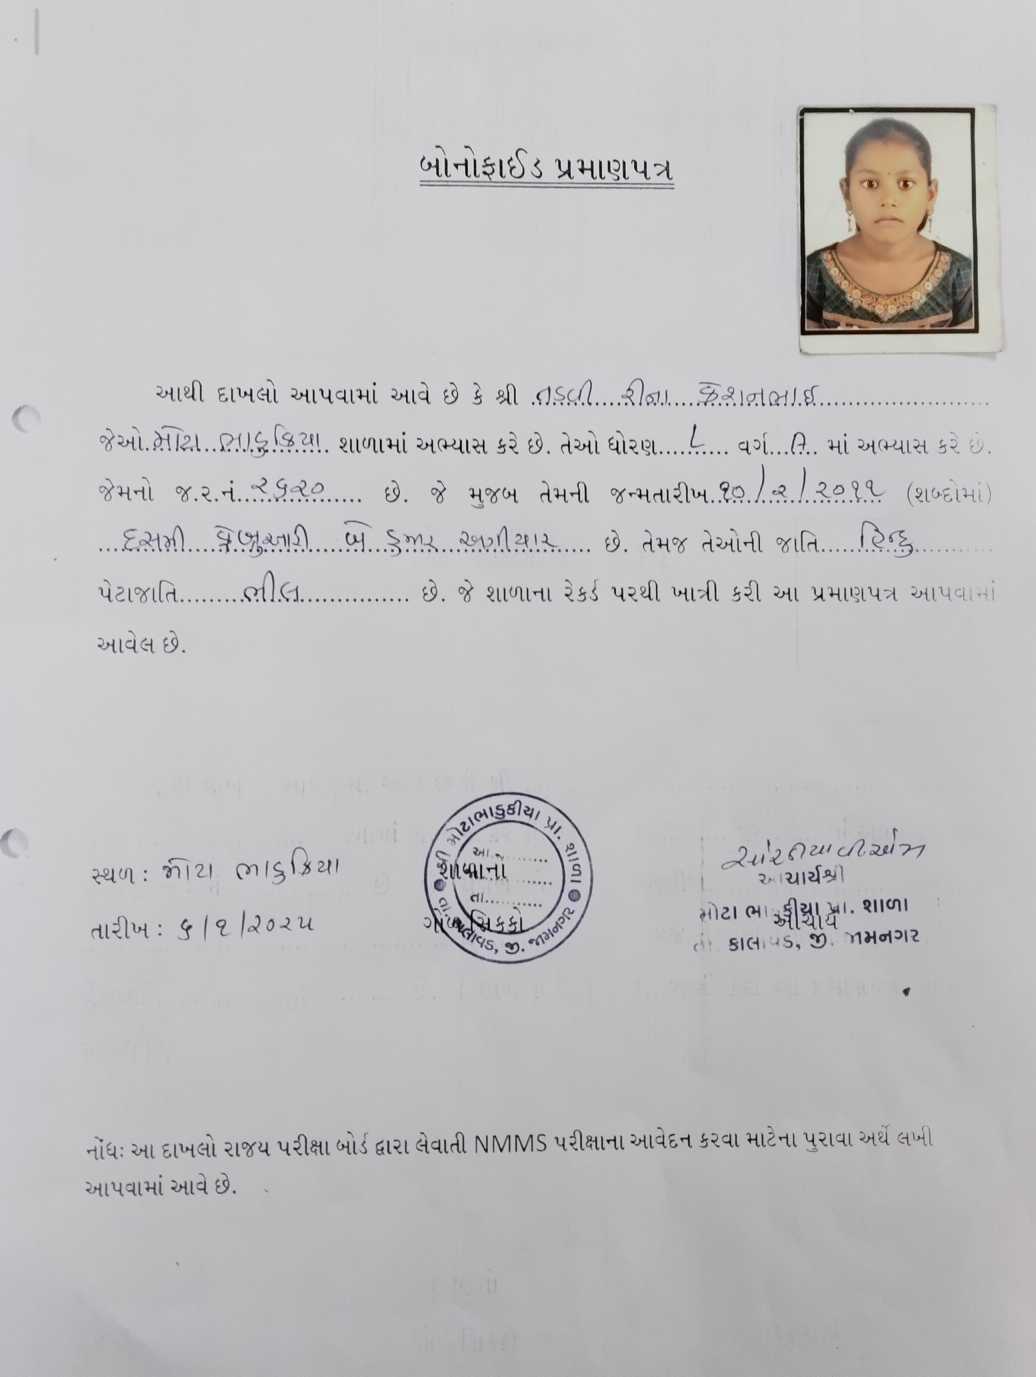 બોનોફાઈડ પ્રમાણપત્ર
આથી દાખલો આપવામાં આવે છે કે શ્રી તડવી રીના કેશનભાઈ
જેઓ મોટા ભાડુકિયા શાળામાં અભ્યાસ કરે છે. તેઓ ધોરણ ૮ વર્ગ માં અભ્યાસ કરે છે.
જેમનો જ.ર.નં. ૨૬૨૦ છે. જે મુજબ તેમની જન્મતારીખ ૧૦/૨/૨૦૧૧ (શબ્દોમાં)
દસમી ફેબ્રુઆરી બે હજાર અગીયાર છે. તેમજ તેઓની જાતિ હિન્દુ
પેટાજાતિ ભીલ છે. જે શાળાના રેકર્ડ પરથી ખાત્રી કરી આ પ્રમાણપત્ર આપવામાં
આવેલ છે.
શ્રી મોટાભાડુકીયા પ્રા. શાળા
આ.
શાળાનો
તા.
ગોળ સિક્કો
તા. કાલાવડ, જી. જામનગર
સ્થળ : મોટા ભાડુકિયા
તારીખ : ૬/૧/૨૦૨૫
આચાર્યશ્રી
આચાર્ય
મોટા ભાડુકીયા પ્રા. શાળા
તા. કાલાવડ, જી. જામનગર
નોંધઃ આ દાખલો રાજ્ય પરીક્ષા બોર્ડ દ્વારા લેવાતી NMMS પરીક્ષાના આવેદન કરવા માટેના પુરાવા અર્થે લખી
આપવામાં આવે છે.